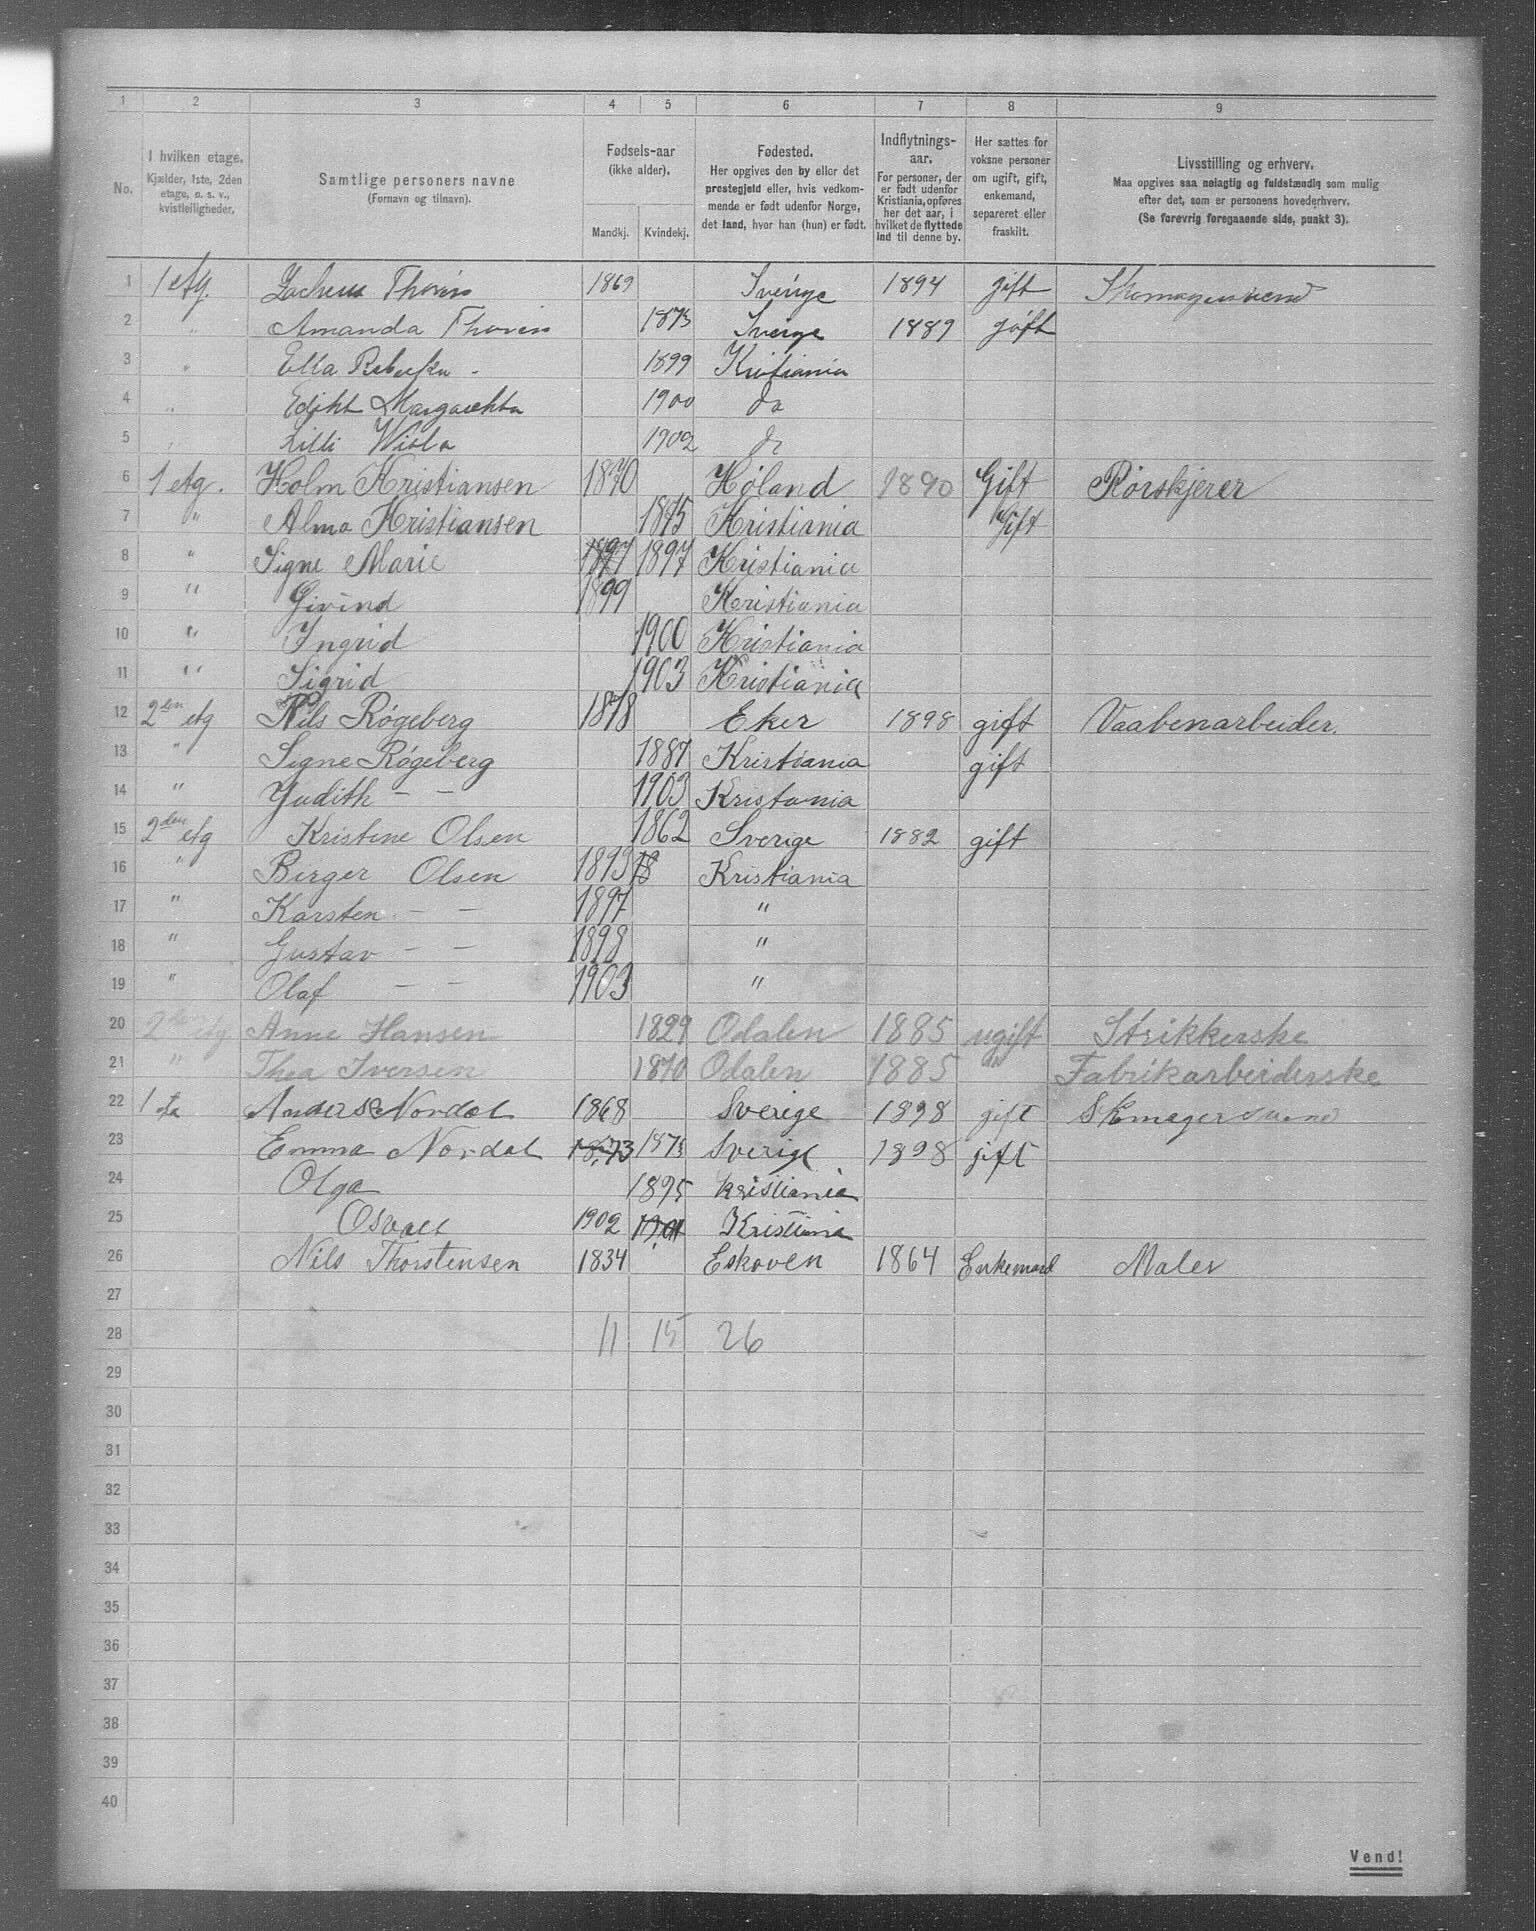 1 2 3 4 5 6 7 8 9
No.
I hvilken etage.
Kjælder, 1ste, 2den
etage, o. s. v.,
kvistleiligheder.
Samtlige personers navne
(Fornavn og tilnavn).
Fødsels-aar
(ikke alder).
Mandkj. Kvindekj.
Fødested.
Her opgives den by eller det
prestegjeld eller, hvis vedkom-
mende er født udenfor Norge,
det land, hvor han (hun) er født.
Indflytnings-
aar.
For personer, der
er født udenfor
Kristiania, opføres
her det aar, i
hvilket de flyttede
ind til denne by.
Her sættes for
voksne personer
om ugift, gift,
enkemand,
separeret eller
fraskilt.
Livsstilling og erhverv.
Maa opgives saa nøiagtig og fuldstændig som mulig
efter det, som er personens hovederhverv.
(Se forøvrig foregaaende side, punkt 3).
1 1 etg. Thorin 1869 Sverige 1894 gift Skomagersvend
2 " Amanda Thorin 1873 Sverige 1889 gift
3 " Ella - 1899 Kristiania
4 " Edikt Margarehta 1900 do
5 " Lilli 1902 do
6 1 etg. Holm Kristiansen 1870 Høland 1890 Gift Rørskjerer
7 " Alma Kristiansen 1875 Kristiania Gift
8 " Signe Marie 1897 1897 Kristiania
9 " Eivind 1899 Kristiania
10 " Ingrid 1900 Kristiania
11 " Sigrid 1903 Kristiania
12 2den etg Nils Røgeberg 1878 Eker 1898 gift Vaabenarbeider.
13 " Signe Røgeberg 1881 Kristiania gift
14 " Judith - - 1903 Kristania
15 2den etg Kristine Olsen 1862 Sverige 1882 gift
16 " Birger Olsen 1893 18 Kristiania
17 " Karsten - - 1897 "
18 " Gustav - - 1898 "
19 " Olaf - - 1903 "
20 2den etg Anne Hansen 1829 Odalen 1885 ugift Strikkerske
21 " Thea Iversen 1870 Odalen 1885 " Fabrikarbeiderske
22 1 Anders Nordal 1868 Sverige 1898 gift Skomagersvend
23 Emma Nordal 1873 1873 Sverige 1898 gift
24 Olga 1895 kristiania
25 Osvall 1902 Kristiania
26 Nils Thorstensen 1834 Eskoven 1864 Enkemand Maler
27
28 11 15 26
29
30
31
32
33
34
35
36
37
38
39
40
Vend!